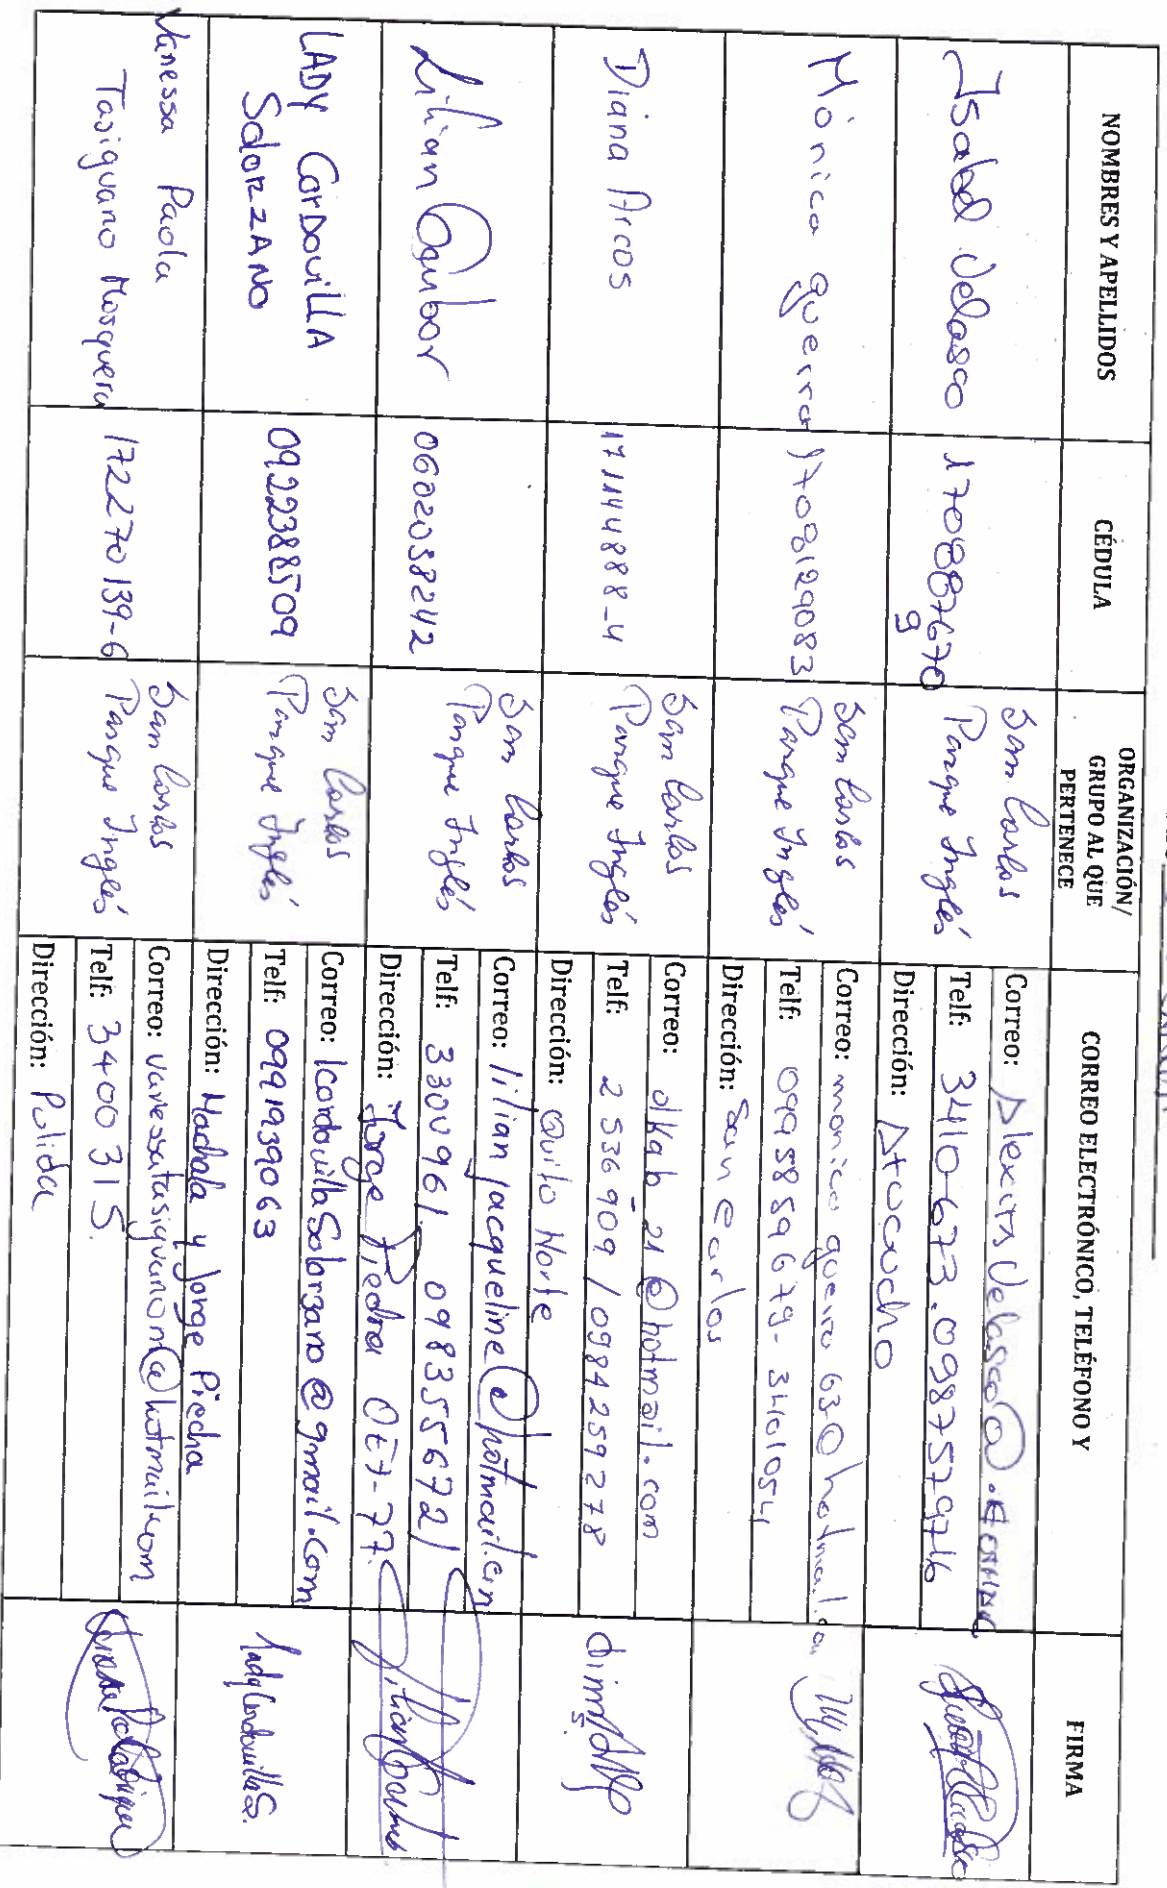 NOMBRES Y APELLIDOS
CÉDULA
ORGANIZACIÓN/
GRUPO AL QUE
PERTENECE
CORREO ELECTRÓNICO, TELÉFONO Y
FIRMA
Isabel Velasco
170887670
9
San Carlos
Parque Inglés
Correo: Alexits Velasco@.
Telf: 3410-673.0987579716
Dirección: Atucucho
Mónica guerra
1708129083
San Carlos
Parque Inglés
Correo: monica guerra 63@hotmail.
Telf: 0995889679- 3401054
Dirección: San Carlos
Diana Arcos
171148888-4
San Carlos
Parque Inglés
Correo: dkab 21@hotmail.com
Telf: 2536909 / 0984259278
Dirección: Quito Norte
Lilian
0602038242
San Carlos
Parque Inglés
Correo: lilian jacqueline@hotmail.com
Telf: 3300961. 0983555672
Dirección: Jorge Piedra OE7-77.
LADY CORDOVILLA
SOLORZANO
0922388509
San Carlos
Parque Inglés
Correo: lcordovillaSolorzano@gmail.com
Telf: 0991939063
Dirección: Machala y Jorge Piedra
Lady Cordovilla S.
Vanessa Paola
Tasiguano Mosquera
172270139-6
San Carlos
Parque Inglés
Correo: vanessatasiguanom@hotmail.com
Telf: 3400315.
Dirección: Pulida